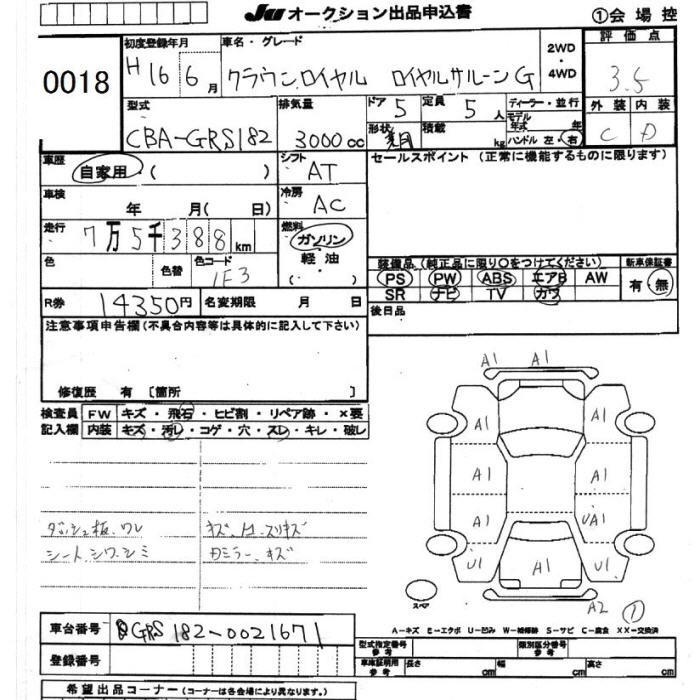 JU オークション出品申込書
①会場控
0018
初度登録年月
H 16 6月
車名・グレード
クラウンロイヤル ロイヤルサルーンG
2WD
・
4WD
評価点
3.5
型式
CBA-GRS182
排気量
3000cc
ドア 5
定員 5人
ディーラー・並行
モデル年式 年
形状
積載 kg
ハンドル 左・右
外装 内装
C D
車歴
自家用・( )
シフト
AT
セールスポイント (正常に機能するものに限ります)
車検
年 月( 日)
冷房
AC
走行
7万5千388km
燃料
ガソリン
軽油
( )
色
色替
色コード
1F3
装備品(純正品に限り○をつけてください)
新車保証書
PS PW ABS エアB AW
有・無
SR ナビ TV カワ
R券 14350円
名変期限 月 日
後日品
注意事項申告欄(不具合内容等は具体的に記入して下さい)
修復歴 有 〔箇所 〕
検査員 FW キズ・飛石・ヒビ割・リペア跡・×要
記入欄 内装 キズ・汚レ・コゲ・穴・スレ・キレ・破レ
ダッシュ板、ワレ
シートシワ、シミ
キズ、スリキズ
ミラー、キズ
A1 A1
A1 A1
A1 A1
A1 UA1
U1 A1 U1
A2 ①
スペア
A-キズ E-エクボ U-凹み W-補修跡 S-サビ C-腐食 XX-交換済
車台番号 GRS182-0021671
登録番号
型式指定番号 参考
類別区分番号 参考
車庫証明用 参考 長さ cm 幅 cm 高さ cm
希望出品コーナー (コーナーは各会場により異なります。)